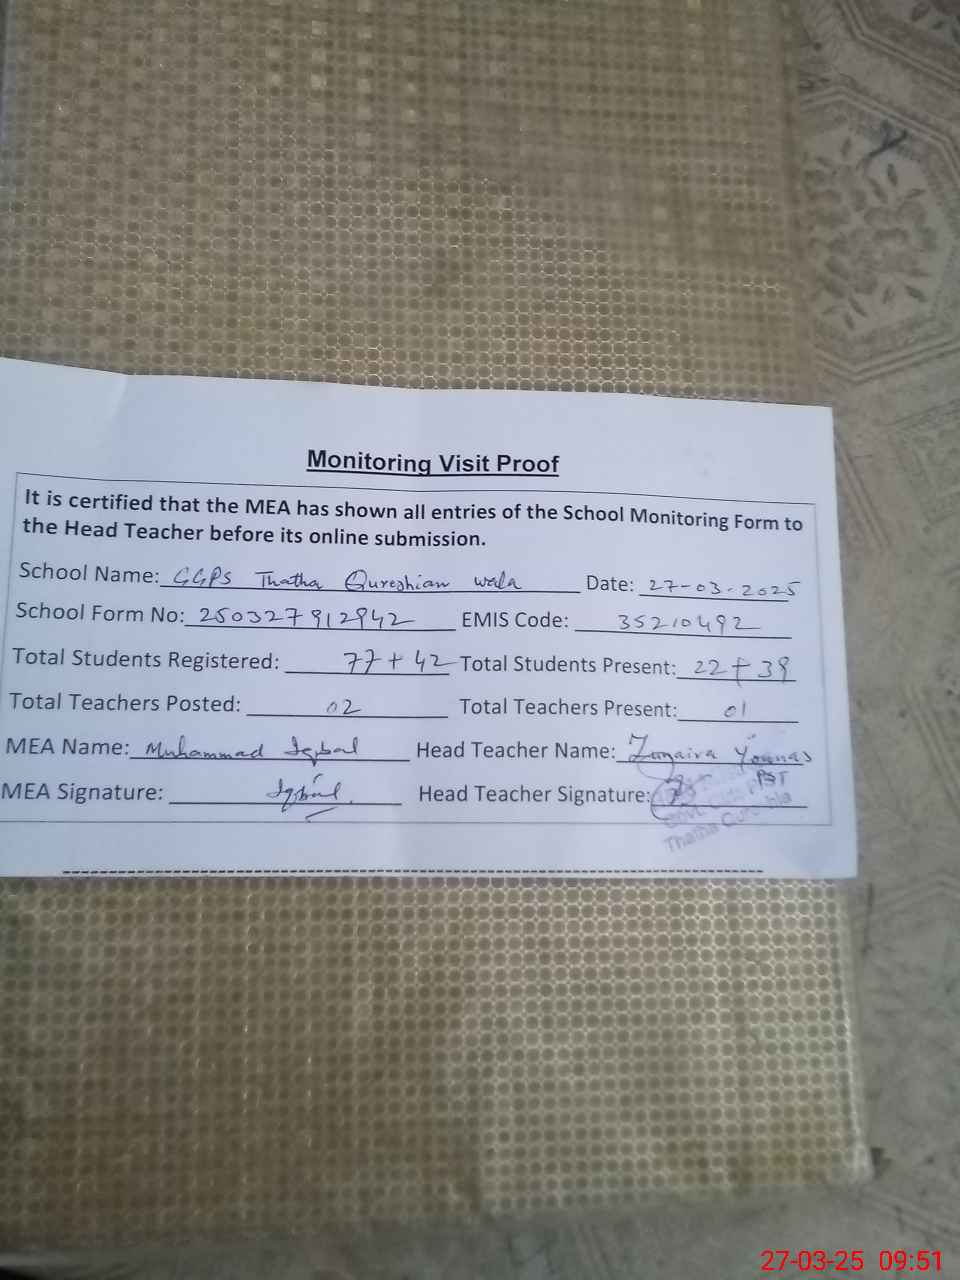 Monitoring Visit Proof
It is certified that the MEA has shown all entries of the School Monitoring Form to
the Head Teacher before its online submission.
School Name: GGPS Thatha Qureshian wala Date: 27-03-2025
School Form No: 250327912942 EMIS Code: 35210492
Total Students Registered: 77+42 Total Students Present: 22+39
Total Teachers Posted: 02 Total Teachers Present: 01
MEA Name: Muhammad Iqbal Head Teacher Name: Younas
PST
MEA Signature: Iqbal Head Teacher Signature:
Govt.
Thatha
27-03-25 09:51